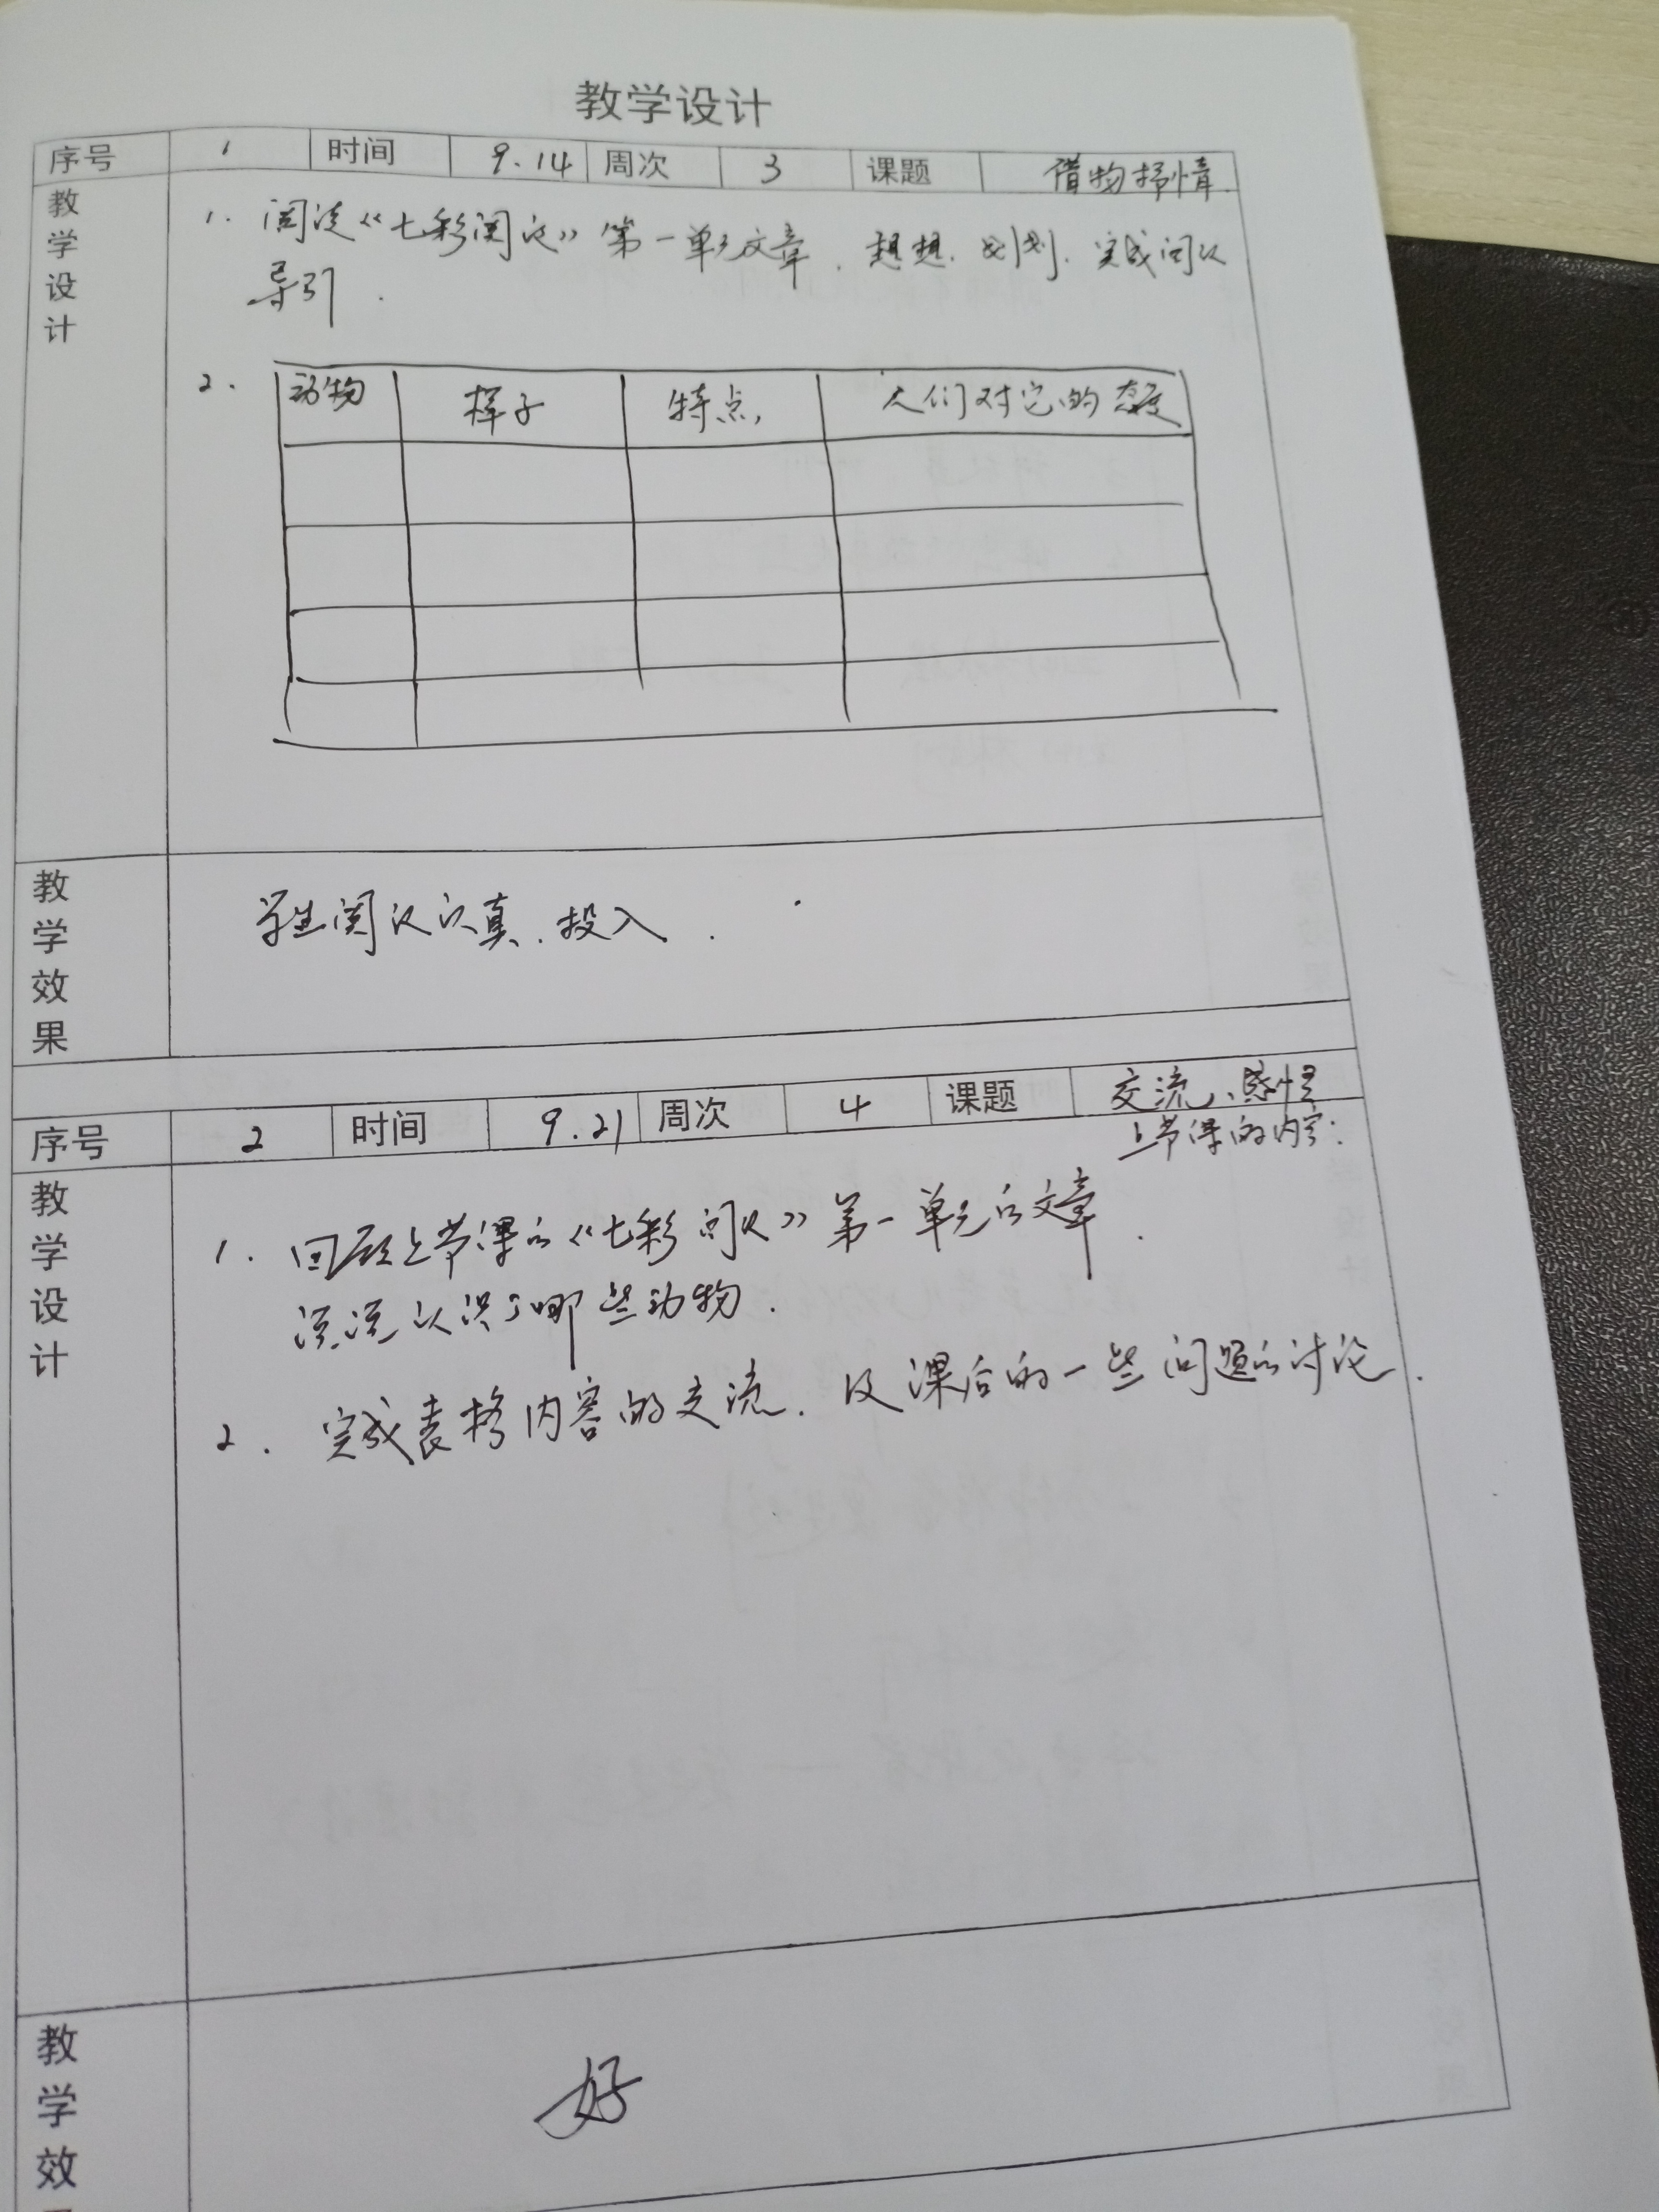 教学设计
序号 1 时间 9.14 周次 3 课题 借物抒情
教学设计
1. 阅读《七彩阅读》第一单元文章. 想想. 划划. 完成阅读
导引.
2.
动物 样子 特点 人们对它的态度
教学效果
学生阅读认真、投入.
序号 2 时间 9.21 周次 4 课题 交流、感悟
上节课的内容.
教学设计
1. 回顾上节课的《七彩阅读》第一单元的文章.
说说认识了哪些动物.
2. 完成表格内容的交流. 及课后的一些问题的讨论.
教学效
好